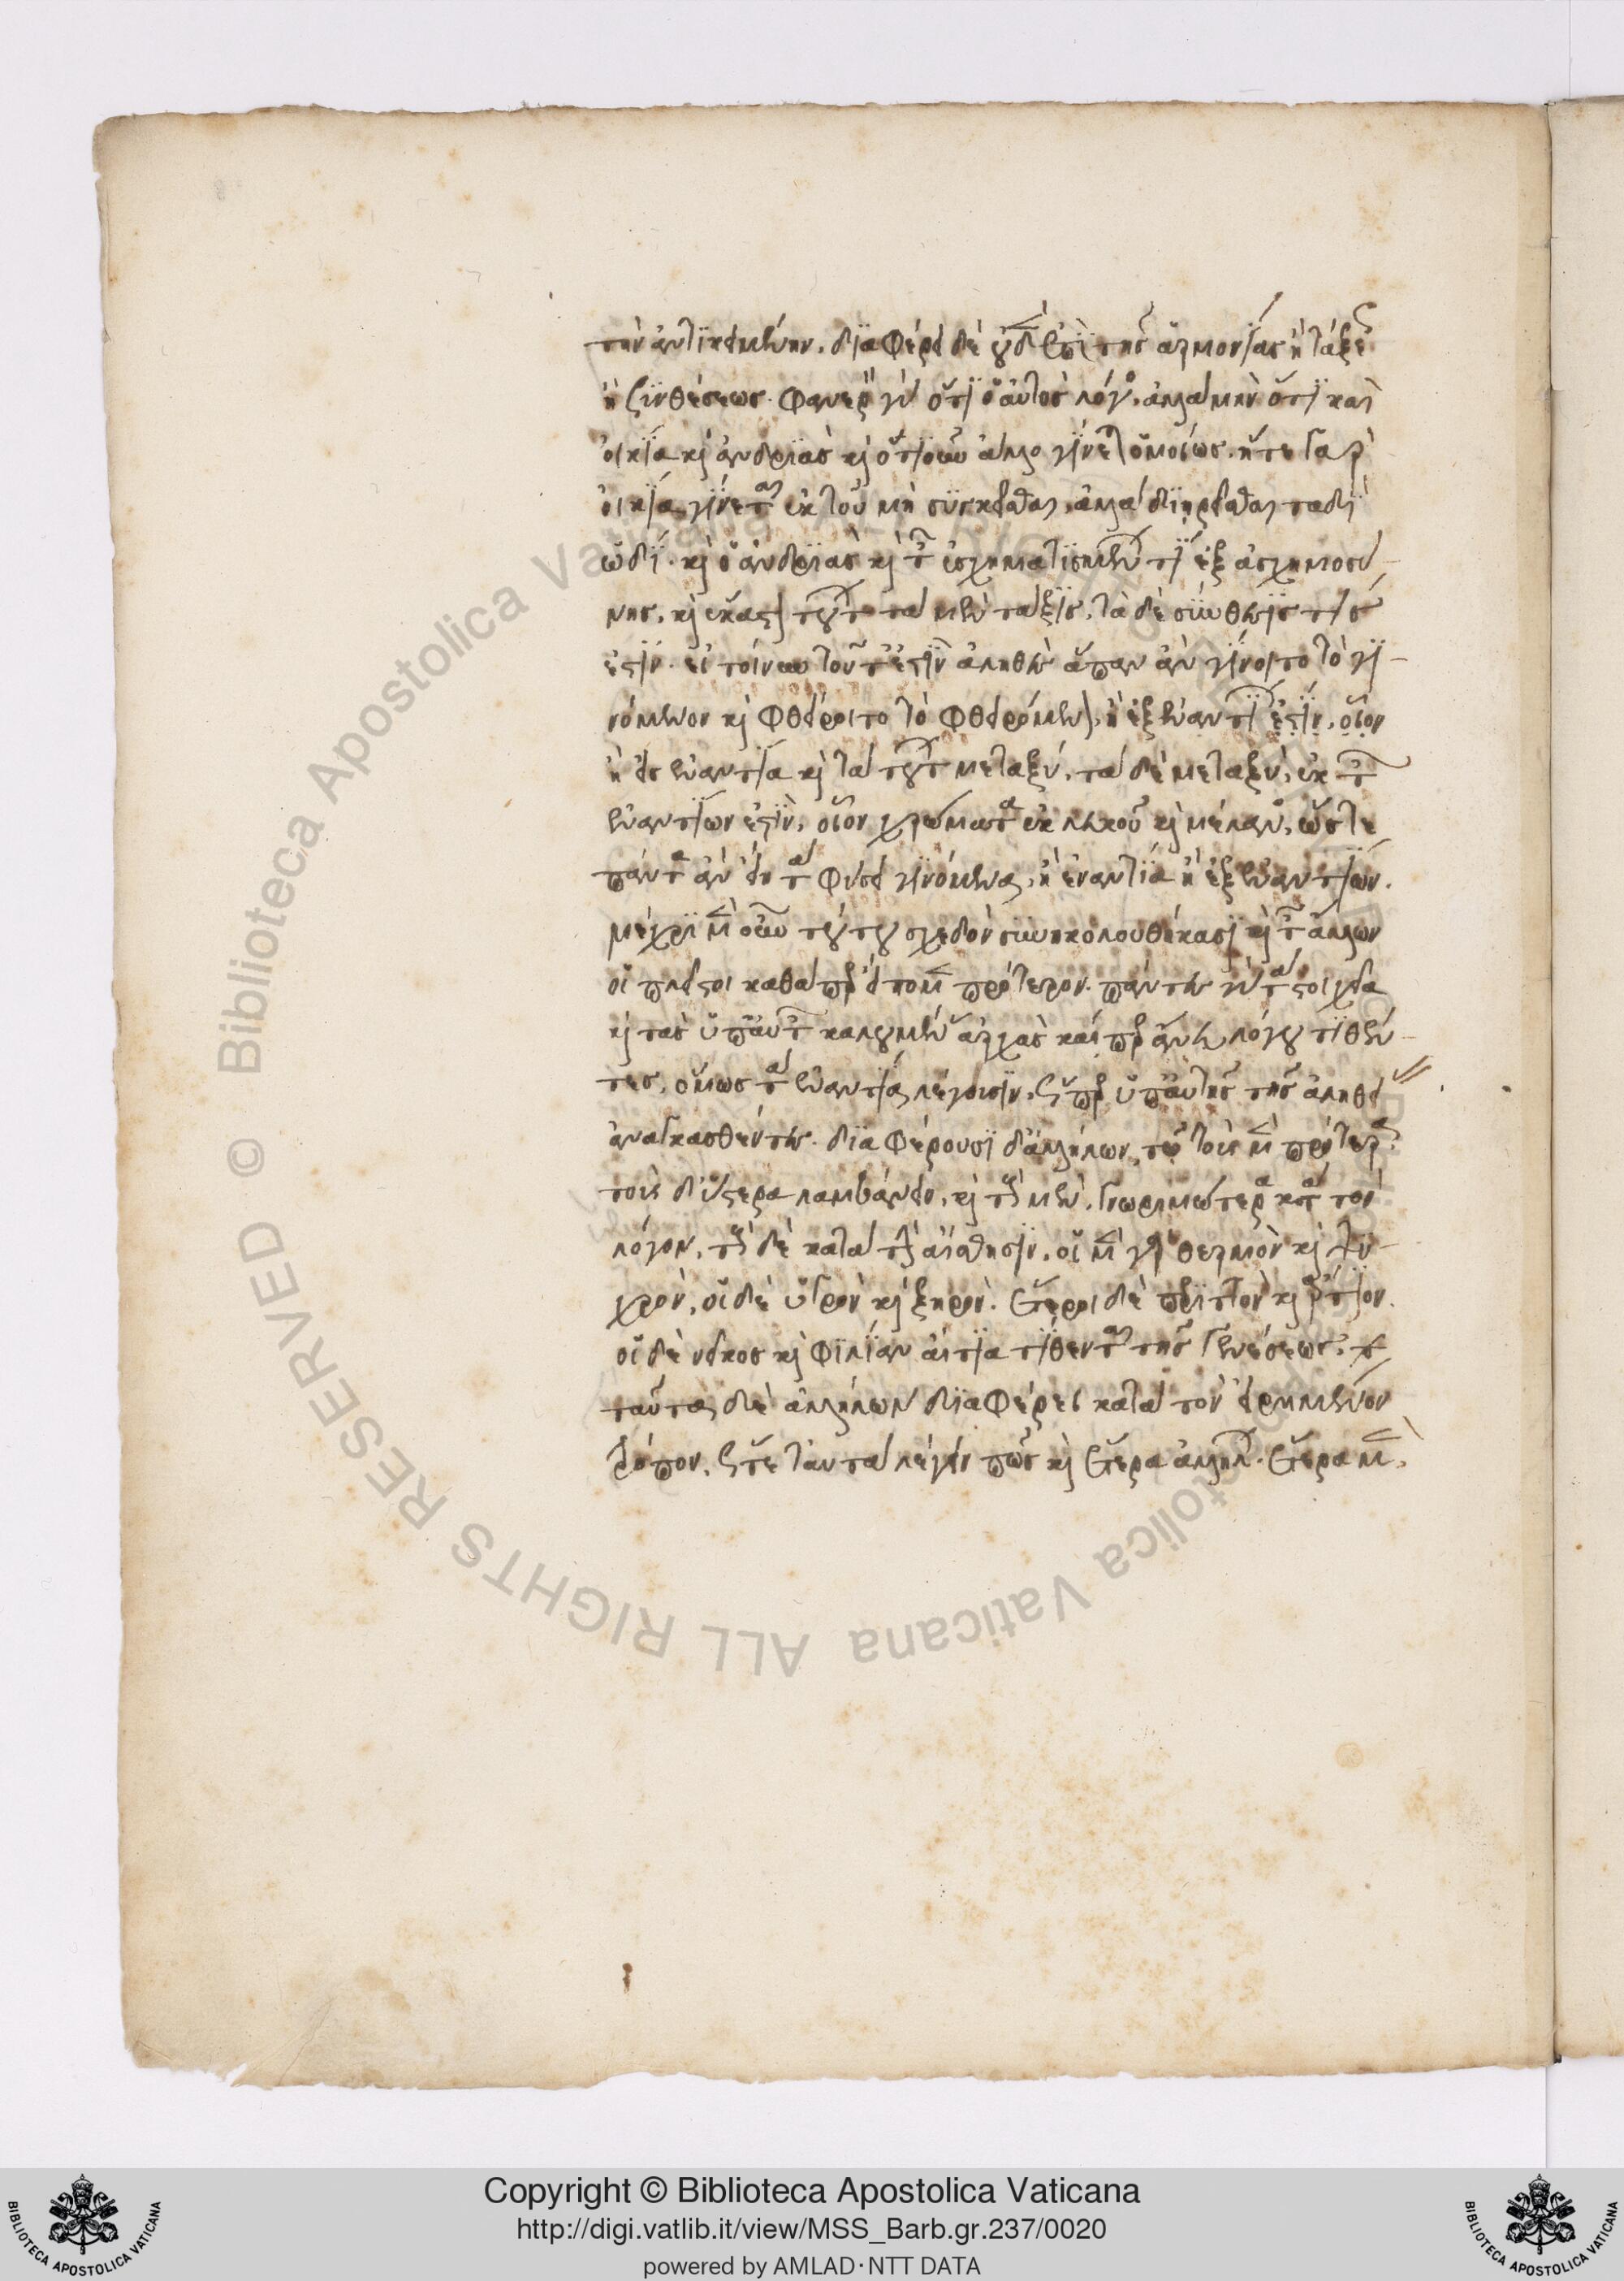 τὴν ἀντικειμένην. διαφέρει δὲ οὐδὲν ἐπὶ τῆς ἁρμονίας ἢ τάξεως
ἢ συνθέσεως. φανερὸν γὰρ ὅτι ὁ αὐτὸς λόγος. ἀλλὰ μὴν ὅτι καὶ
οἰκία καὶ ἀνδριὰς καὶ ὁτιοῦν ἄλλο γίνεται ὁμοίως. ἥτε γὰρ
οἰκία γίνεται ἐκ τοῦ μὴ συγκεῖσθαι, ἀλλὰ διηρεῖσθαι ταδὶ
ὡδί. καὶ ὁ ἀνδριὰς καὶ τῶν ἐσχηματισμένων τι ἐξ ἀσχημοσύ-
νης. καὶ ἕκαστον τούτων τὰ μὲν τάξις, τὰ δὲ σύνθεσις τίς
ἐστιν. εἰ τοίνυν τοῦτ' ἐστὶν ἀληθὲς ἅπαν ἂν γίνοιτο τὸ γι-
νόμενον καὶ φθείροιτο τὸ φθειρόμενον, ἢ ἐξ ἐναντίων ἐστίν, οἷον
ἢ εἰς ἐναντία καὶ τὰ τούτων μεταξύ. τὰ δὲ μεταξὺ, ἐκ τῶν
ἐναντίων ἐστὶν, οἷον χρώματα ἐκ λευκοῦ καὶ μέλανος, ὥστε
πάντα ἂν εἴη τὰ φύσει γινόμενα, ἢ ἐναντία ἢ ἐξ ἐναντίων.
μέχρι μὲν οὖν τούτου σχεδὸν συνηκολουθήκασι καὶ τῶν ἄλλων
οἱ πλεῖστοι καθάπερ εἴπομεν πρότερον. πάντες γὰρ τὰ στοιχεῖα
καὶ τὰς ὑπ' αὐτῶν καλουμένας ἀρχὰς καίπερ ἄνευ λόγου τιθέν-
τες, ὅμως τὰ ἐναντία λέγουσιν, ὥσπερ ὑπ' αὐτῆς τῆς ἀληθεί
ἀναγκασθέντες. διαφέρουσι δ' ἀλλήλων, τῷ τοὺς μὲν πρότερα
τοὺς δ' ὕστερα λαμβάνειν, καὶ τοὺς μὲν, γνωριμώτερα κατὰ τὸν
λόγον, τοὺς δὲ κατὰ τὴν αἴσθησιν. οἱ μὲν γὰρ θερμὸν καὶ ψυ-
χρὸν, οἱ δὲ ὑγρὸν καὶ ξηρὸν. ἕτεροι δὲ περιττὸν καὶ ἄρτιον.
οἱ δὲ νεῖκος καὶ φιλίαν αἰτίας τίθενται τῆς γενέσεως. τ
ταῦτα δὲ ἀλλήλων διαφέρει κατὰ τὸν εἰρημένον
τρόπον. ὥστε ταὐτὰ λέγειν πως καὶ ἕτερα ἀλλήλων. ἕτερα μὲν,
© Biblioteca Apostolica Vaticana ALL RIGHTS RESERVED
Copyright © Biblioteca Apostolica Vaticana
http://digi.vatlib.it/view/MSS_Barb.gr.237/0020
powered by AMLAD·NTT DATA
BIBLIOTECA APOSTOLICA VATICANA
BIBLIOTECA APOSTOLICA VATICANA